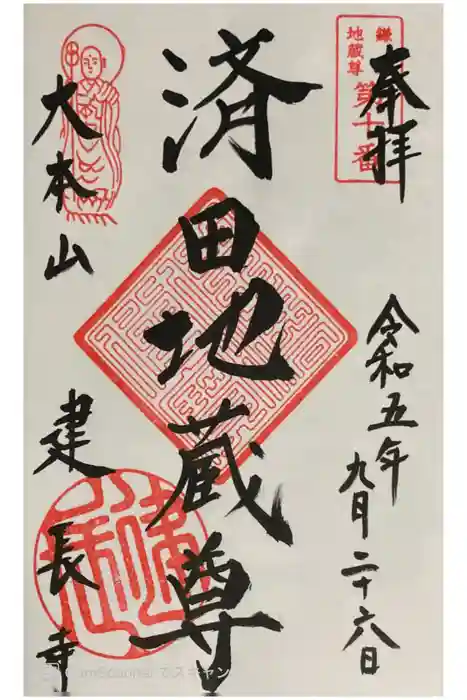 奉拝
鎌
地蔵尊
第十番
令和五年
九月二十六日
済田地蔵尊
大本山
建長寺
でスキャン